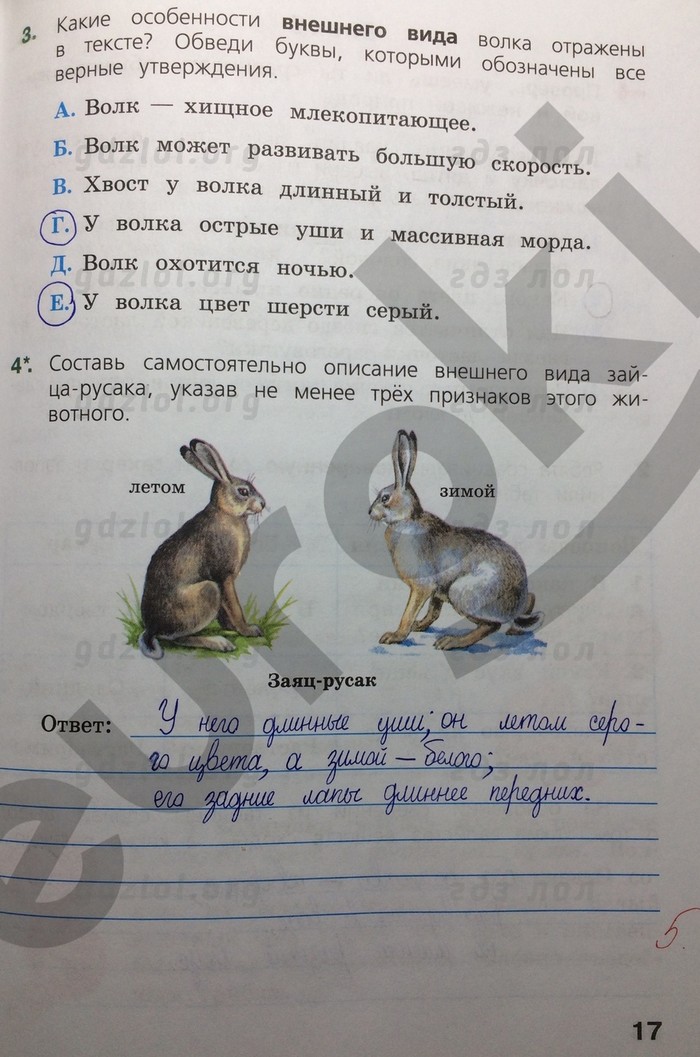 3. Какие особенности внешнего вида волка отражены
в тексте? Обведи буквы, которыми обозначены все
верные утверждения.
А. Волк — хищное млекопитающее.
Б. Волк может развивать большую скорость.
gdzlol.org гдз лол
В. Хвост у волка длинный и толстый.
Г. У волка острые уши и массивная морда.
Д. Волк охотится ночью.
gdzlol.org гдз лол
Е. У волка цвет шерсти серый.
4*. Составь самостоятельно описание внешнего вида зай-
ца-русака, указав не менее трёх признаков этого жи-
вотного.
gdzlol.org гдз лол
летом
зимой
gdzlol.org гдз лол
gdzlol.org гдз лол
Заяц-русак
Ответ: У него длинные уши; он летом серо-
го цвета, а зимой – белого;
его задние лапы длиннее передних.
gdzlol.org гдз лол
5.
17
euroki